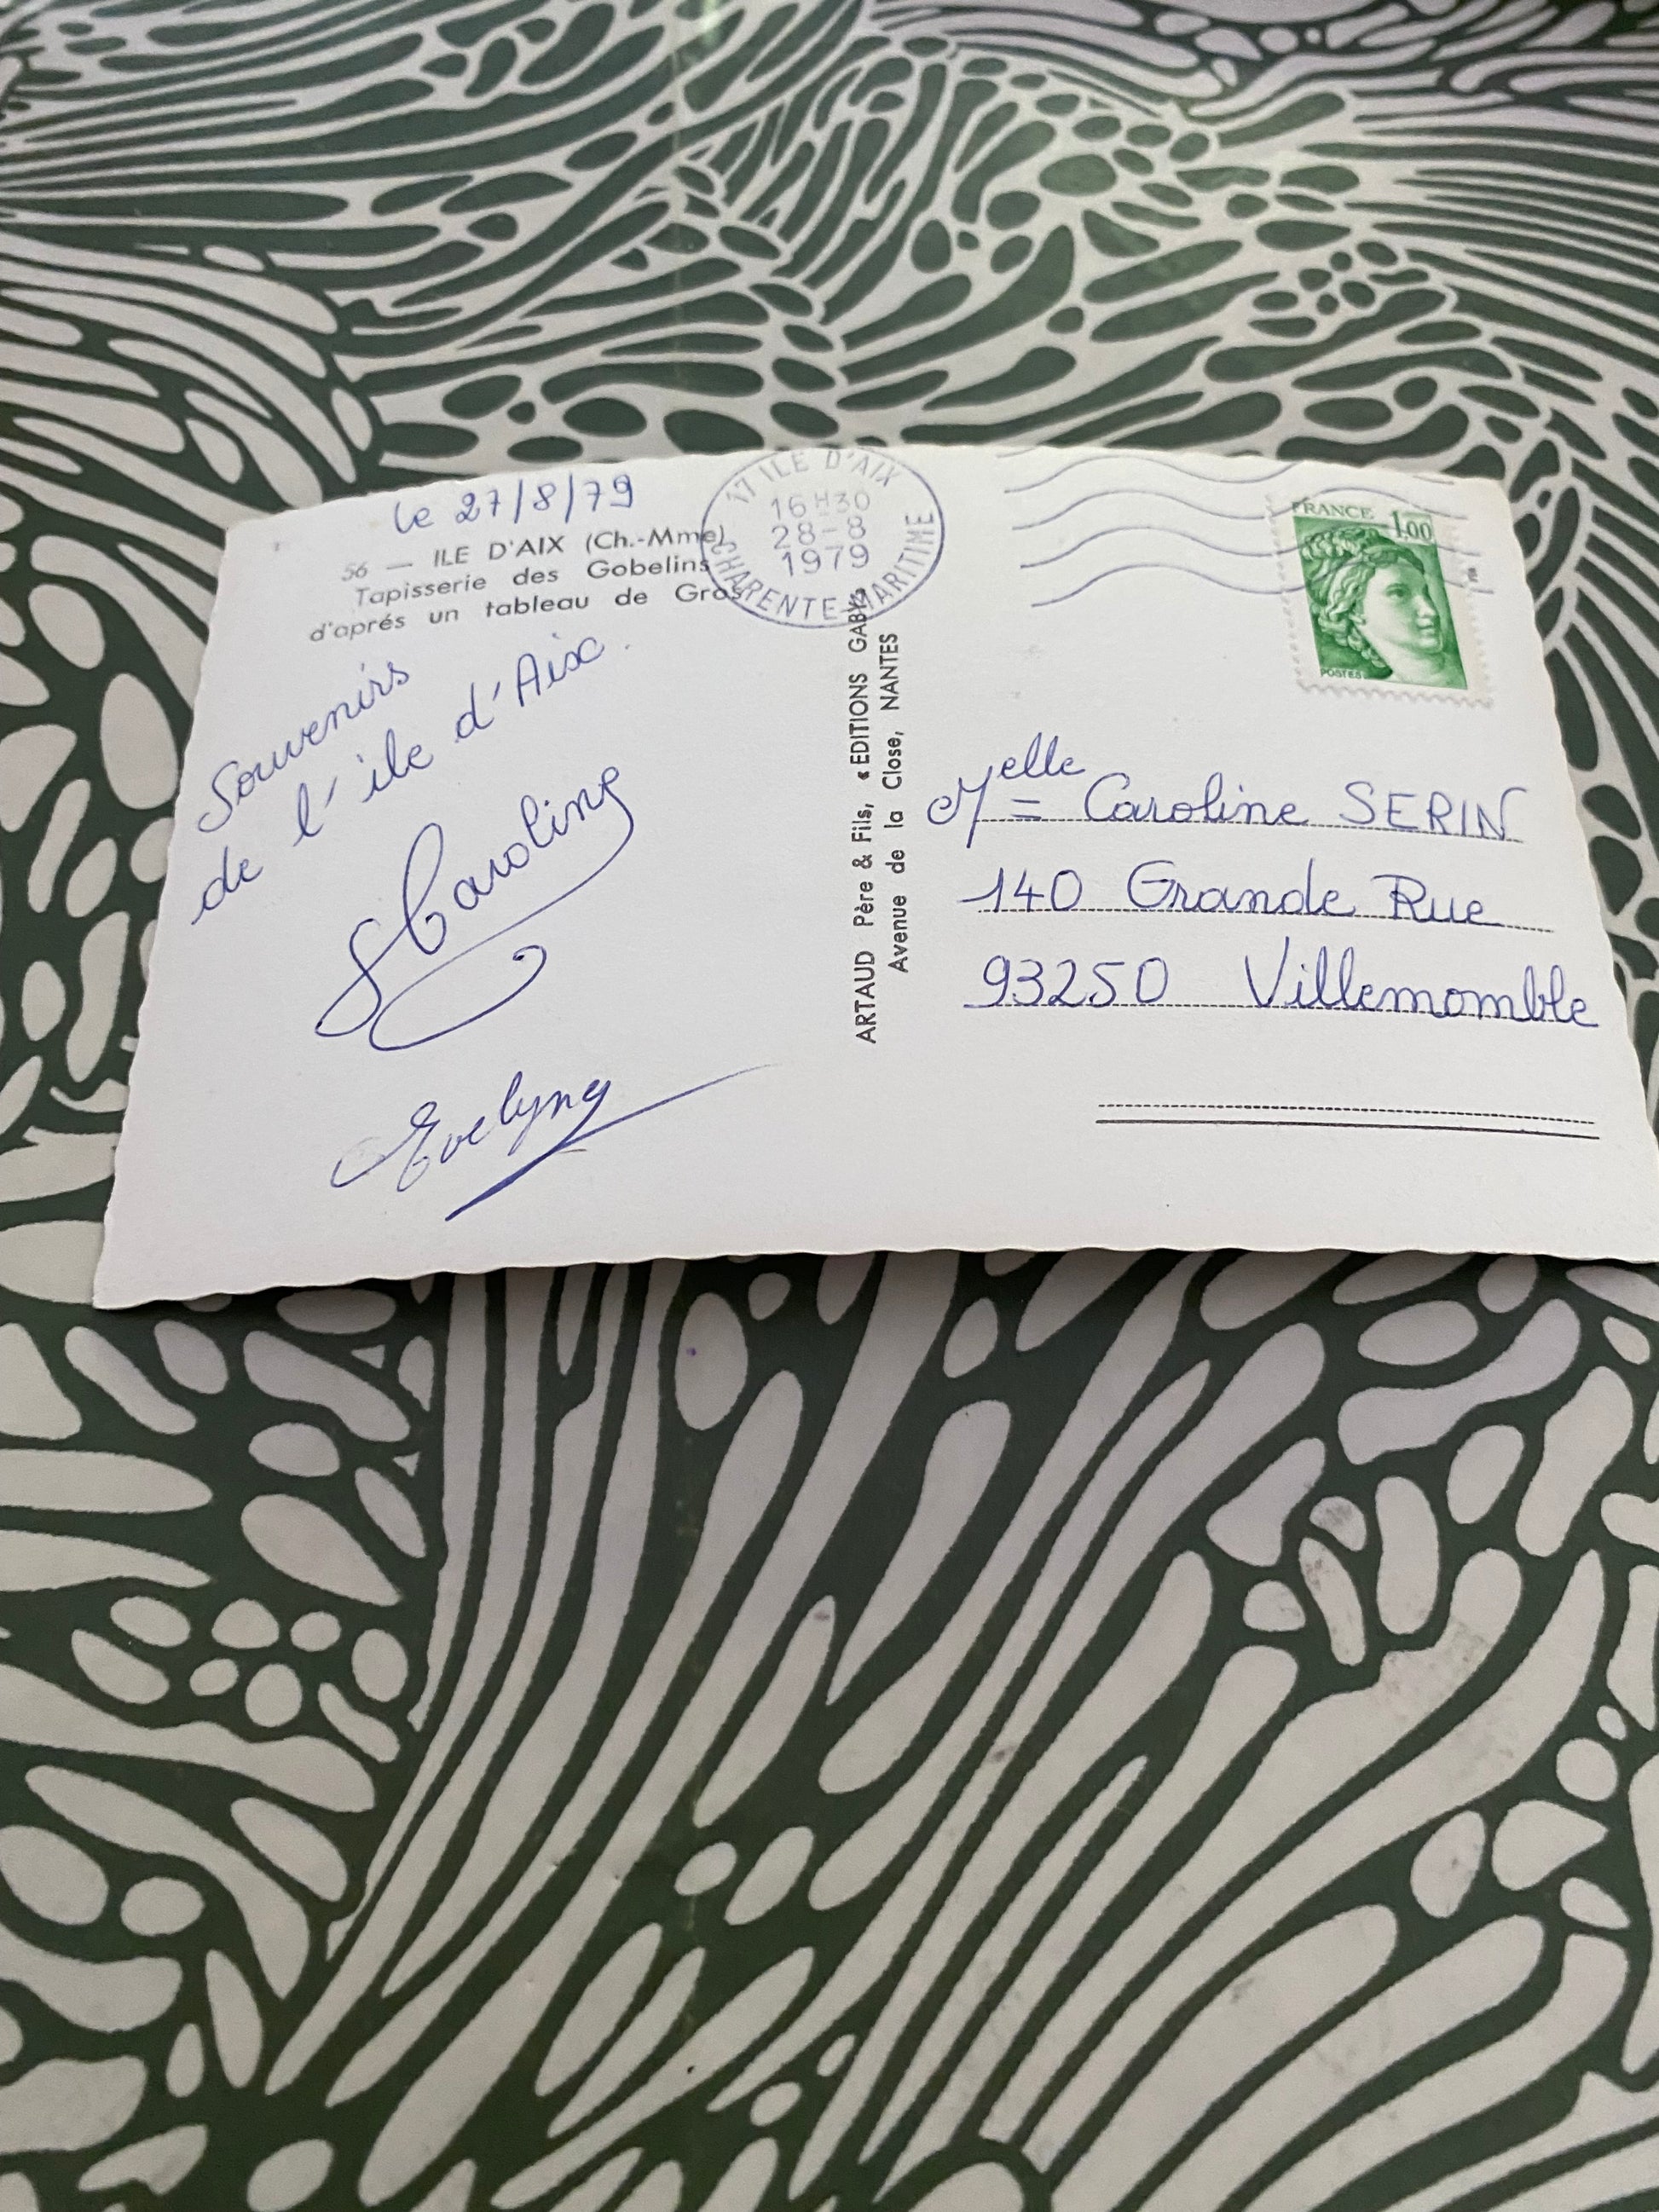 le 27/8/79
56 — ILE D'AIX (Ch.-Mme)
Tapisserie des Gobelins
d'aprés un tableau de Gros
Souvenirs
de l'ile d'Aix.
Caroline
Evelyne
17 ILE D'AIX
16H30
28-8
1979
CHARENTE-MARITIME
ARTAUD Père & Fils, « EDITIONS GABY »
Avenue de la Close, NANTES
FRANCE 1.00
POSTES
Melle Caroline SERIN
140 Grande Rue
93250 Villemomble